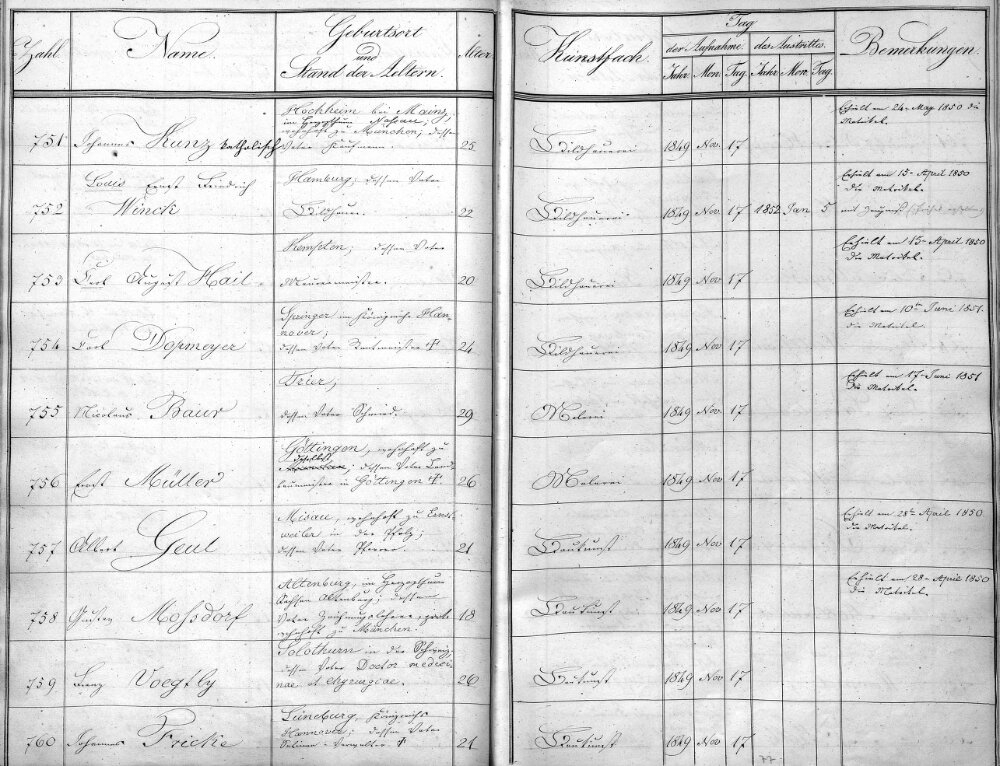 Zahl. Name. Geburtsort und Stand der Aeltern. Alter Kunstfach. Tag der Aufnahme. des Austrittes. Bemerkungen.
Jahr. Mon. Tag Jahr. Mon. Tag.
Hochheim bei Mainz,
im Herzogthum Nassau,
wohnhaft zu München; dessen
751 Johannes Kunz katholisch Vater Kaufmann. 25 Bildhauerei 1849 Nov. 17 Erhielt am 24. May 1850 die Matrikel.
Louis Ernst Friedrich Hamburg; dessen Vater
752 Winck Bildhauer. 22 Bildhauerei. 1849 Nov. 17 1852 Jan 5 Erhielt am 15. April 1850 die Matrikel.
Kempten; dessen Vater
753 Karl August Hail Maurermeister. 20 Bildhauerei 1849 Nov. 17 Erhielt am 15. April 1850 die Matrikel.
im Königreiche Hannover;
754 Karl Dopmeyer dessen Vater Rentmeister † 24 Bildhauerei 1849 Nov. 17 Erhielt am 10ten Juni 1851. die Matrikel.
Trier;
755 Nicolaus Baur dessen Vater Schmied. 29 Malerei 1849 Nov. 17 Erhielt am 17. Juni 1851 die Matrikel.
Göttingen, wohnhaft zu
daselbst; dessen Vater
756 Ernst Müller in Göttingen †. 26 Malerei 1849 Nov. 17
Misau, wohnhaft zu
in der Pfalz;
757 Albert Geul dessen Vater Pfarrer. 21 Baukunst 1849 Nov 17 Erhielt am 28ten April 1850 die Matrikel.
Altenburg, im Herzogthum
Sachsen Altenburg; dessen
Vater Zeichnungslehrer,
758 Gustav Mossdorf wohnhaft zu München. 18 Baukunst 1849 Nov. 17 Erhielt am 28. April 1850 die Matrikel.
Solothurn in der Schweiz;
dessen Vater Doctor medici-
759 Franz Voegtly nae et chyrurgiae. 26 Baukunst 1849 Nov 17
Lüneburg, Königreichs
Hannover; dessen Vater
760 Johannes Fricke Salinen-Verwalter † 21 Baukunst 1849 Nov. 17
77